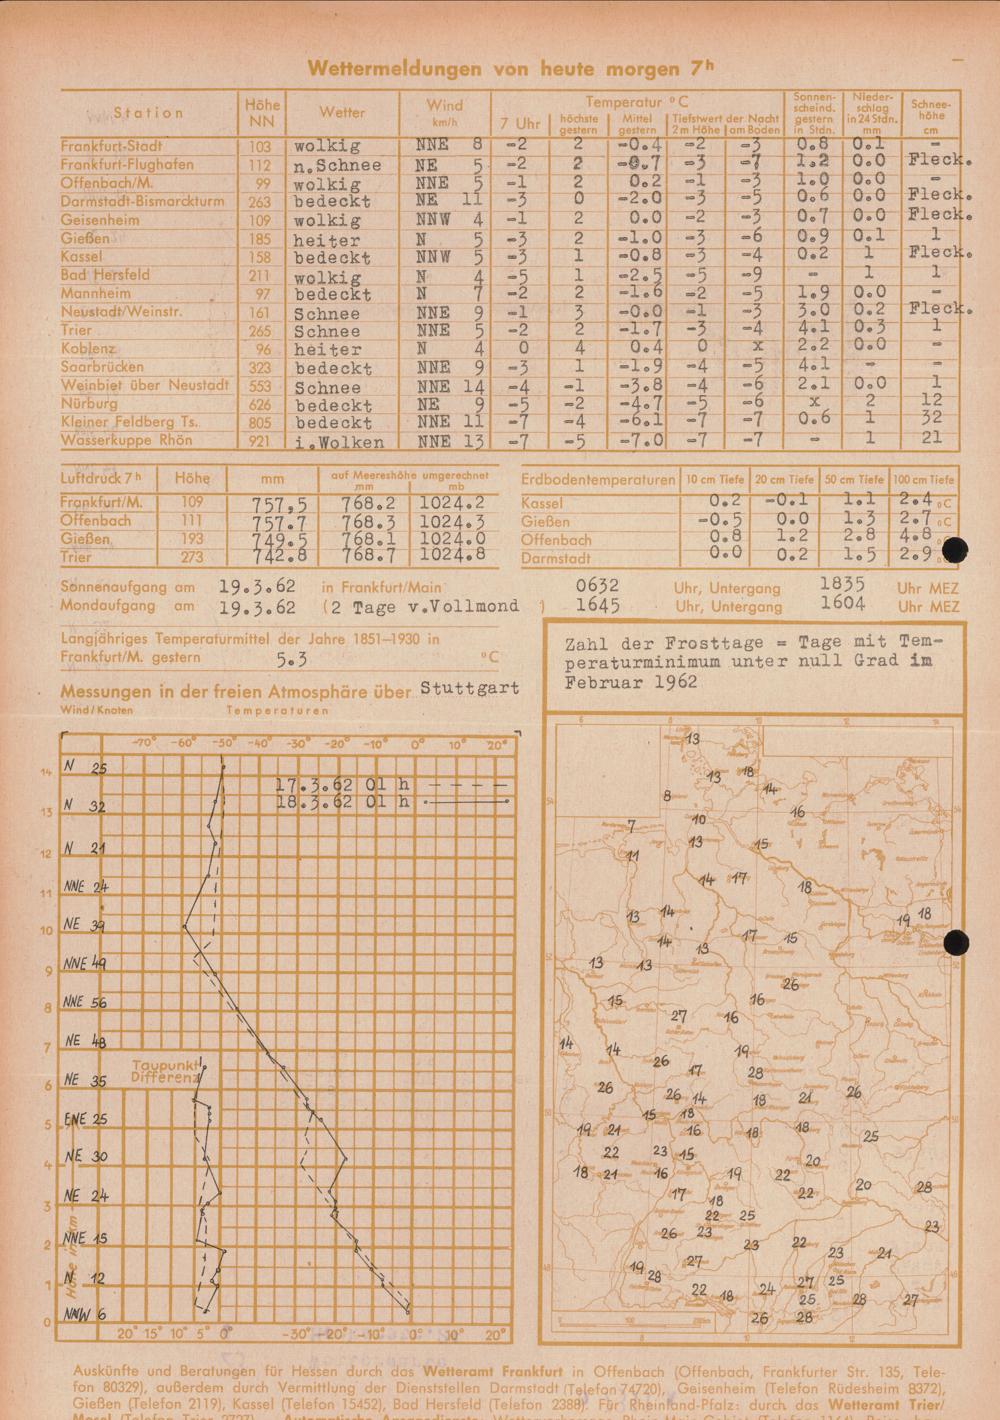 Wettermeldungen von heute morgen 7h
Station Höhe NN Wetter Wind km/h Temperatur °C Sonnenscheind. gestern in Stdn. Niederschlag in 24 Stdn. mm Schneehöhe cm
7 Uhr höchste gestern Mittel gestern Tiefstwert der Nacht 2 m Höhe am Boden
Frankfurt-Stadt 103 wolkig NNE 8 -2 2 -0.4 -2 -3 0.8 0.1 -
Frankfurt-Flughafen 112 n.Schnee NE 5 -2 2 -0.7 -3 -7 1.2 0.0 Fleck.
Offenbach/M. 99 wolkig NNE 5 -1 2 0.2 -1 -3 1.0 0.0 -
Darmstadt-Bismarckturm 263 bedeckt NE 11 -3 0 -2.0 -3 -5 0.6 0.0 Fleck.
Geisenheim 109 wolkig NNW 4 -1 2 0.0 -2 -3 0.7 0.0 Fleck.
Gießen 185 heiter N 5 -3 2 -1.0 -3 -6 0.9 0.1 1
Kassel 158 bedeckt NNW 5 -3 1 -0.8 -3 -4 0.2 1 Fleck.
Bad Hersfeld 211 wolkig N 4 -5 1 -2.5 -5 -9 - 1 1
Mannheim 97 bedeckt N 7 -2 2 -1.6 -2 -5 1.9 0.0 -
Neustadt/Weinstr. 161 Schnee NNE 9 -1 3 -0.0 -1 -3 3.0 0.2 Fleck.
Trier 265 Schnee NNE 5 -2 2 -1.7 -3 -4 4.1 0.3 1
Koblenz 96 heiter N 4 0 4 0.4 0 x 2.2 0.0 -
Saarbrücken 323 bedeckt NNE 9 -3 1 -1.9 -4 -5 4.1 - -
Weinbiet über Neustadt 553 Schnee NNE 14 -4 -1 -3.8 -4 -6 2.1 0.0 1
Nürburg 626 bedeckt NE 9 -5 -2 -4.7 -5 -6 x 2 12
Kleiner Feldberg Ts. 805 bedeckt NNE 11 -7 -4 -6.1 -7 -7 0.6 1 32
Wasserkuppe Rhön 921 i.Wolken NNE 13 -7 -5 -7.0 -7 -7 - 1 21
Luftdruck 7h Höhe mm auf Meereshöhe umgerechnet mm mb
Frankfurt/M. 109 757,5 768.2 1024.2
Offenbach 111 757.7 768.3 1024.3
Gießen 193 749.5 768.1 1024.0
Trier 273 742.8 768.7 1024.8
Erdbodentemperaturen 10 cm Tiefe 20 cm Tiefe 50 cm Tiefe 100 cm Tiefe
Kassel 0.2 -0.1 1.1 2.4 °C
Gießen -0.5 0.0 1.3 2.7 °C
Offenbach 0.8 1.2 2.8 4.8 °C
Darmstadt 0.0 0.2 1.5 2.9
Sonnenaufgang am 19.3.62 in Frankfurt/Main 0632 Uhr, Untergang 1835 Uhr MEZ
Mondaufgang am 19.3.62 (2 Tage v.Vollmond ) 1645 Uhr, Untergang 1604 Uhr MEZ
Langjähriges Temperaturmittel der Jahre 1851–1930 in
Frankfurt/M. gestern 5.3 °C
Messungen in der freien Atmosphäre über Stuttgart
Wind/Knoten Temperaturen
-70° -60° -50° -40° -30° -20° -10° 0° 10° 20°
17.3.62 01 h
18.3.62 01 h
14 N 25
13 N 32
12 N 21
11 NNE 24
10 NE 39
9 NNE 49
8 NNE 56
7 NE 48
Taupunkt
Differenz
6 NE 35
5 ENE 25
4 NE 30
3 NE 24
2 NNE 15
1 N 12
0 NNW 6
Höhe in km
20° 15° 10° 5° 0° -30° -20° -10° 0° 10° 20°
Zahl der Frosttage = Tage mit Tem-
peraturminimum unter null Grad im
Februar 1962
13
13 18
14
8 16
10
7
13 15
11
14 17
18
13 14 19 18
14 13 17 15
13 13
26
15 16
27 16
14 14 19
26 17 28
26 26 14 18 21 26
15 18
19 21 16 18 18 25
22 23 15 20
18 21 16 19 22 20 28
17 18 22
22 25 23
26 23 23 22 23 21
19 28 27
22 18 24 27 25
25 28 27
26 28
Auskünfte und Beratungen für Hessen durch das Wetteramt Frankfurt in Offenbach (Offenbach, Frankfurter Str. 135, Tele-
fon 80329), außerdem durch Vermittlung der Dienststellen Darmstadt (Telefon 74720), Geisenheim (Telefon Rüdesheim 8372),
Gießen (Telefon 2119), Kassel (Telefon 15452), Bad Hersfeld (Telefon 2388). Für Rheinland-Pfalz: durch das Wetteramt Trier/